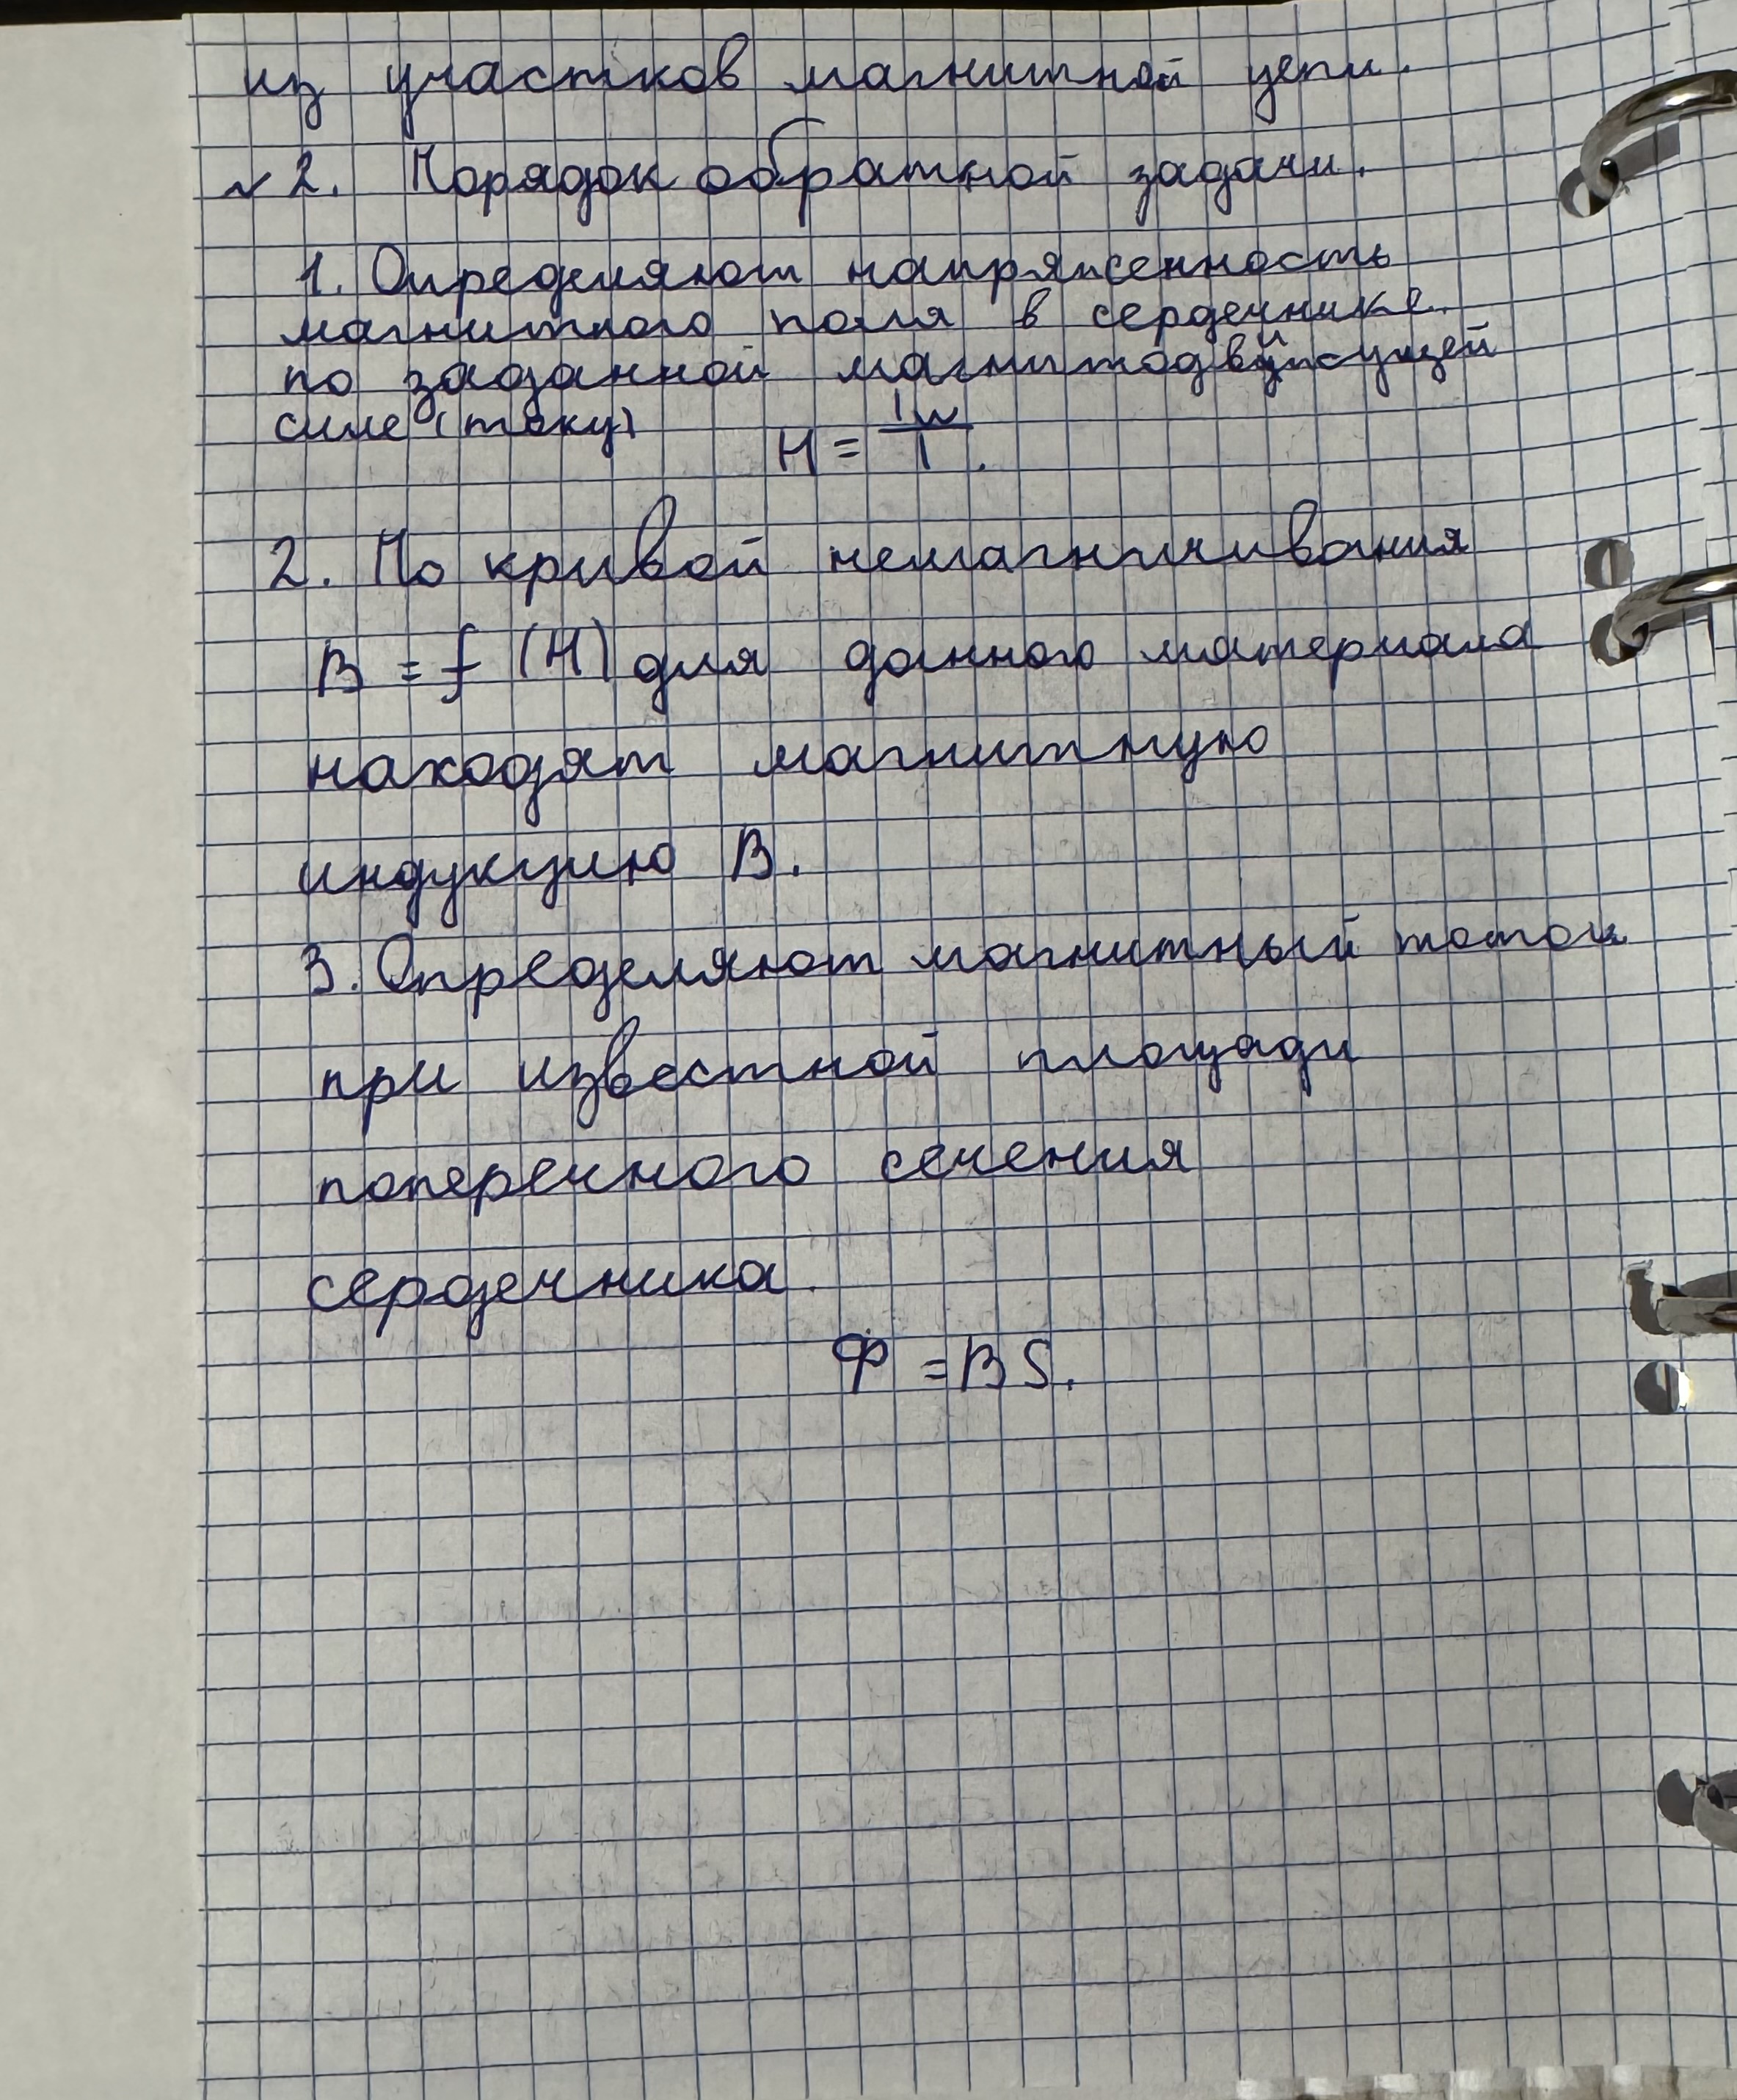 из участков магнитной цепи.
~ 2. Порядок обратной задачи.
1. Определяют напряженность
магнитного поля в сердечнике
по заданной магнитодвижущей
силе (току) H = Iw / l.
2. По кривой немагничивания
B = f (H) для данного материала
находят магнитную
индукцию B.
3. Определяют магнитный поток
при известной площади
поперечного сечения
сердечника.
Ф = B S.